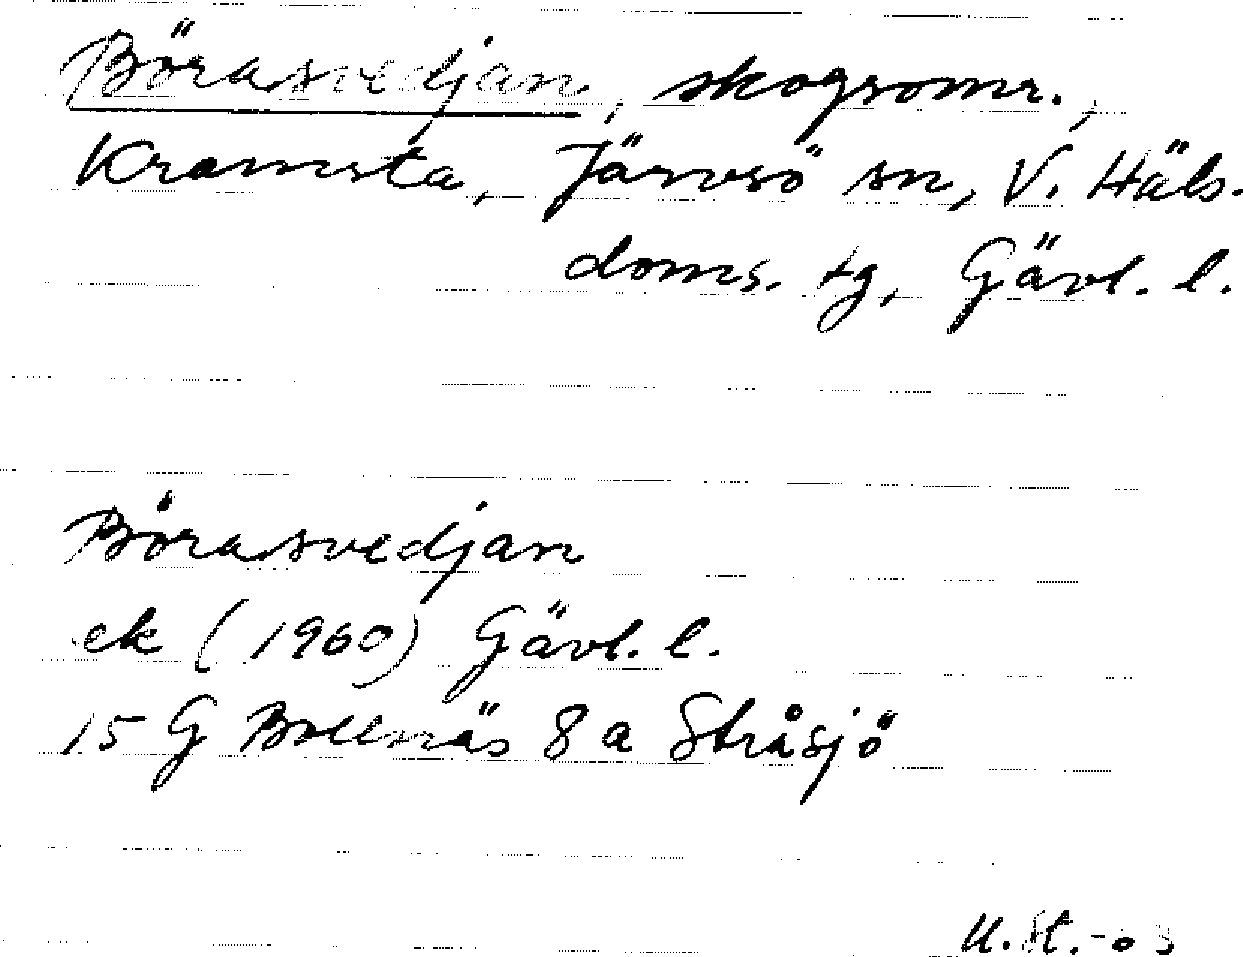 Börasvedjan, skogsomr.,
Kramsta, Järvsö sn, V. Häls.
doms. tg, Gävl. l.
Börasvedjan
ek (1960) Gävl. l.
15 G Bollnäs 8 a Stråsjö
U.St.-03